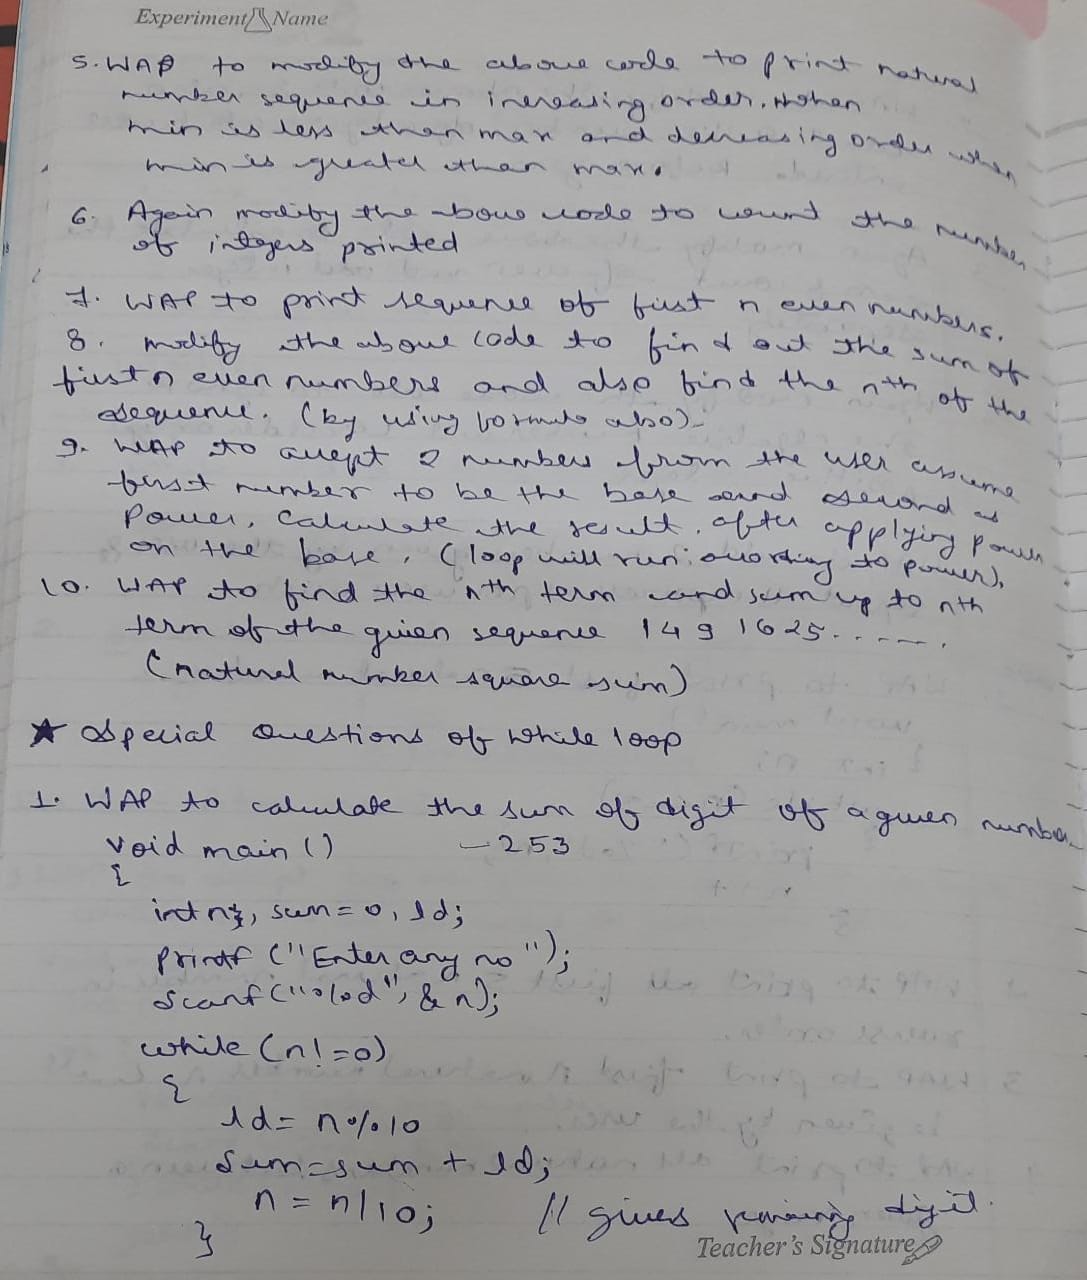 Experiment Name
5. WAP to modify the above code to print natural
number sequence in increasing order. when
min is less than max and decreasing order when
min is greater than max.
6. Again modify the above code to count the number
of integers printed
7. WAP to print sequence of first n even numbers.
8. modify the above code to find out the sum of
first n even numbers and also find the nth of the
sequence. (by using formula also)
9. WAP to accept 2 numbers from the user assume
first number to be the base and second as
power. Calculate the result. after applying power
on the base. (loop will run according to power).
10. WAP to find the nth term and sum up to nth
term of the given sequence 1 4 9 16 25.....
(natural number square sum)
★ Special Questions of while loop
1. WAP to calculate the sum of digit of a given number
void main () - 253
{
int n, sum = 0, ld;
printf ("Enter any no");
scanf ("%d", & n);
while (n! =0)
{
ld = n%10
sum=sum + ld;
n = n/10; // gives remaining digit.
}
Teacher's Signature